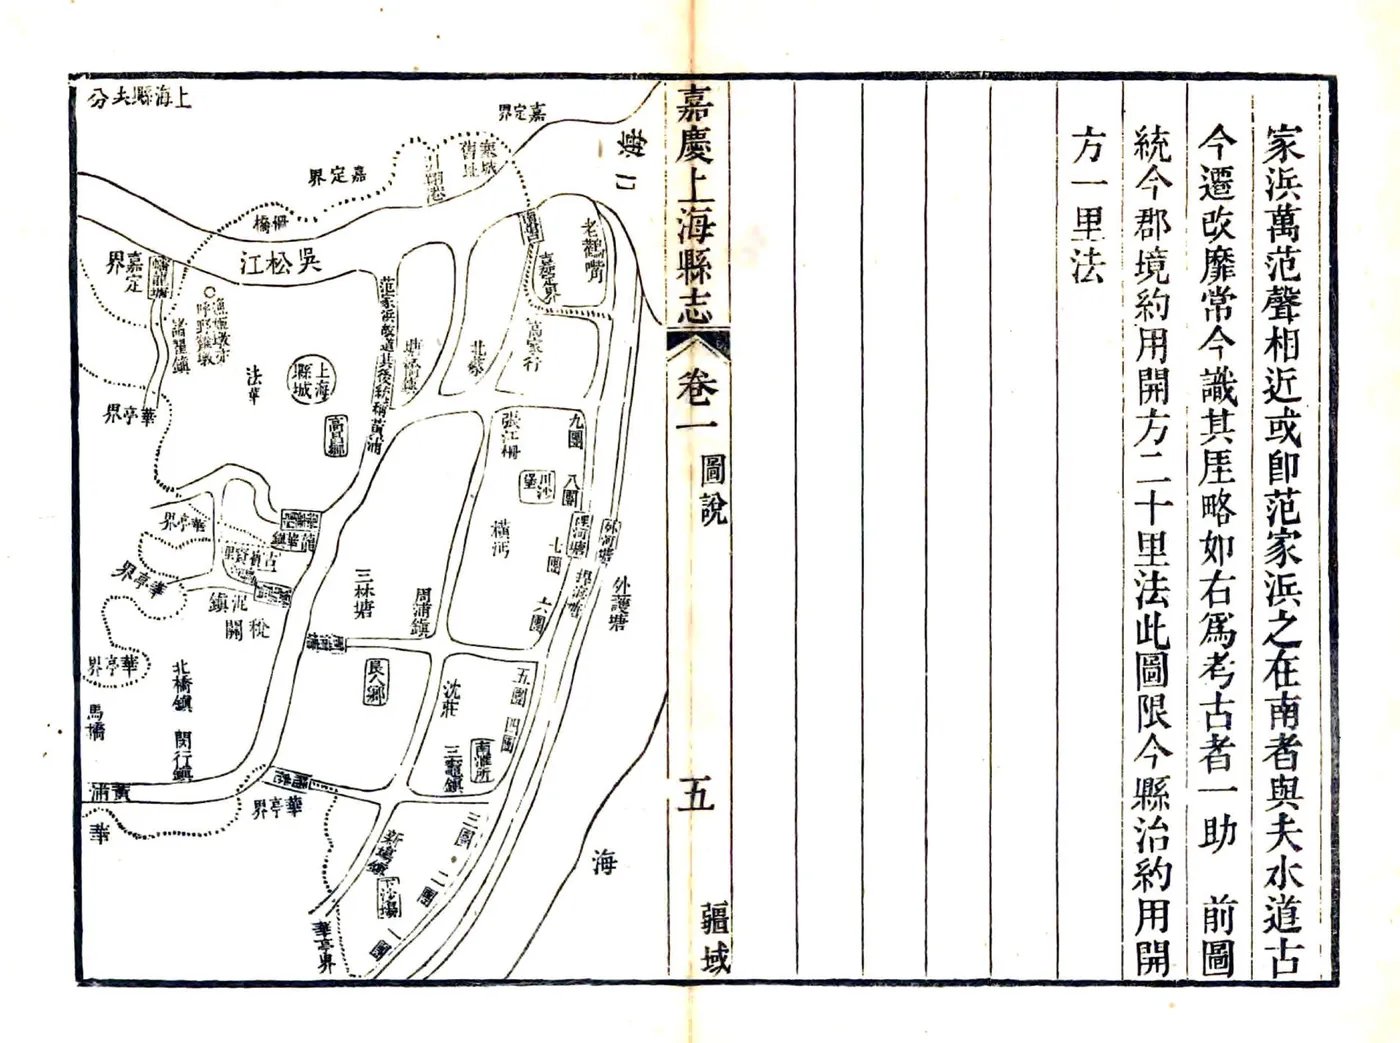 家浜萬范聲相近或卽范家浜之在南者與夫水道古
今遷改靡常今識其厓略如右爲考古者一助　前圖
統今郡境約用開方二十里法此圖限今縣治約用開
方一里法
嘉慶上海縣志
卷一
圖說
五
疆域
上海縣夫分
嘉定界
海口
嘉定界
舊城
舊址
老鸛嘴
嘉定界
吳松江
嘉定界
范家浜故道其後統稱黃浦
高家行
北蔡
諸翟鎮
法華
上海縣城
高昌鄉
華亭界
九團
張江柵
八團
川沙堡
橫沔
七團
裡河塘
外河塘
外護塘
六團
龍華鎮
華亭界
華亭界
三林塘
周浦鎮
長人鄉
沈莊
五團
四團
南滙所
三竈鎮
華亭界
北橋鎮
閔行鎮
馬橋
黃浦
華
華亭界
三團
二團
一團
新塲鎮
下沙塲
華亭界
海